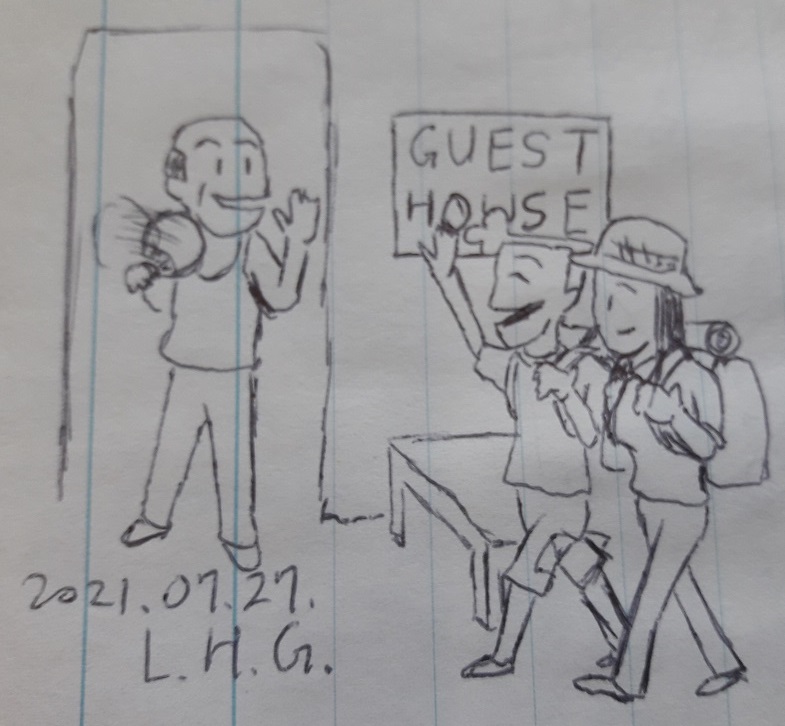 GUEST
HOWSE
2021.07.27.
L.H.G.